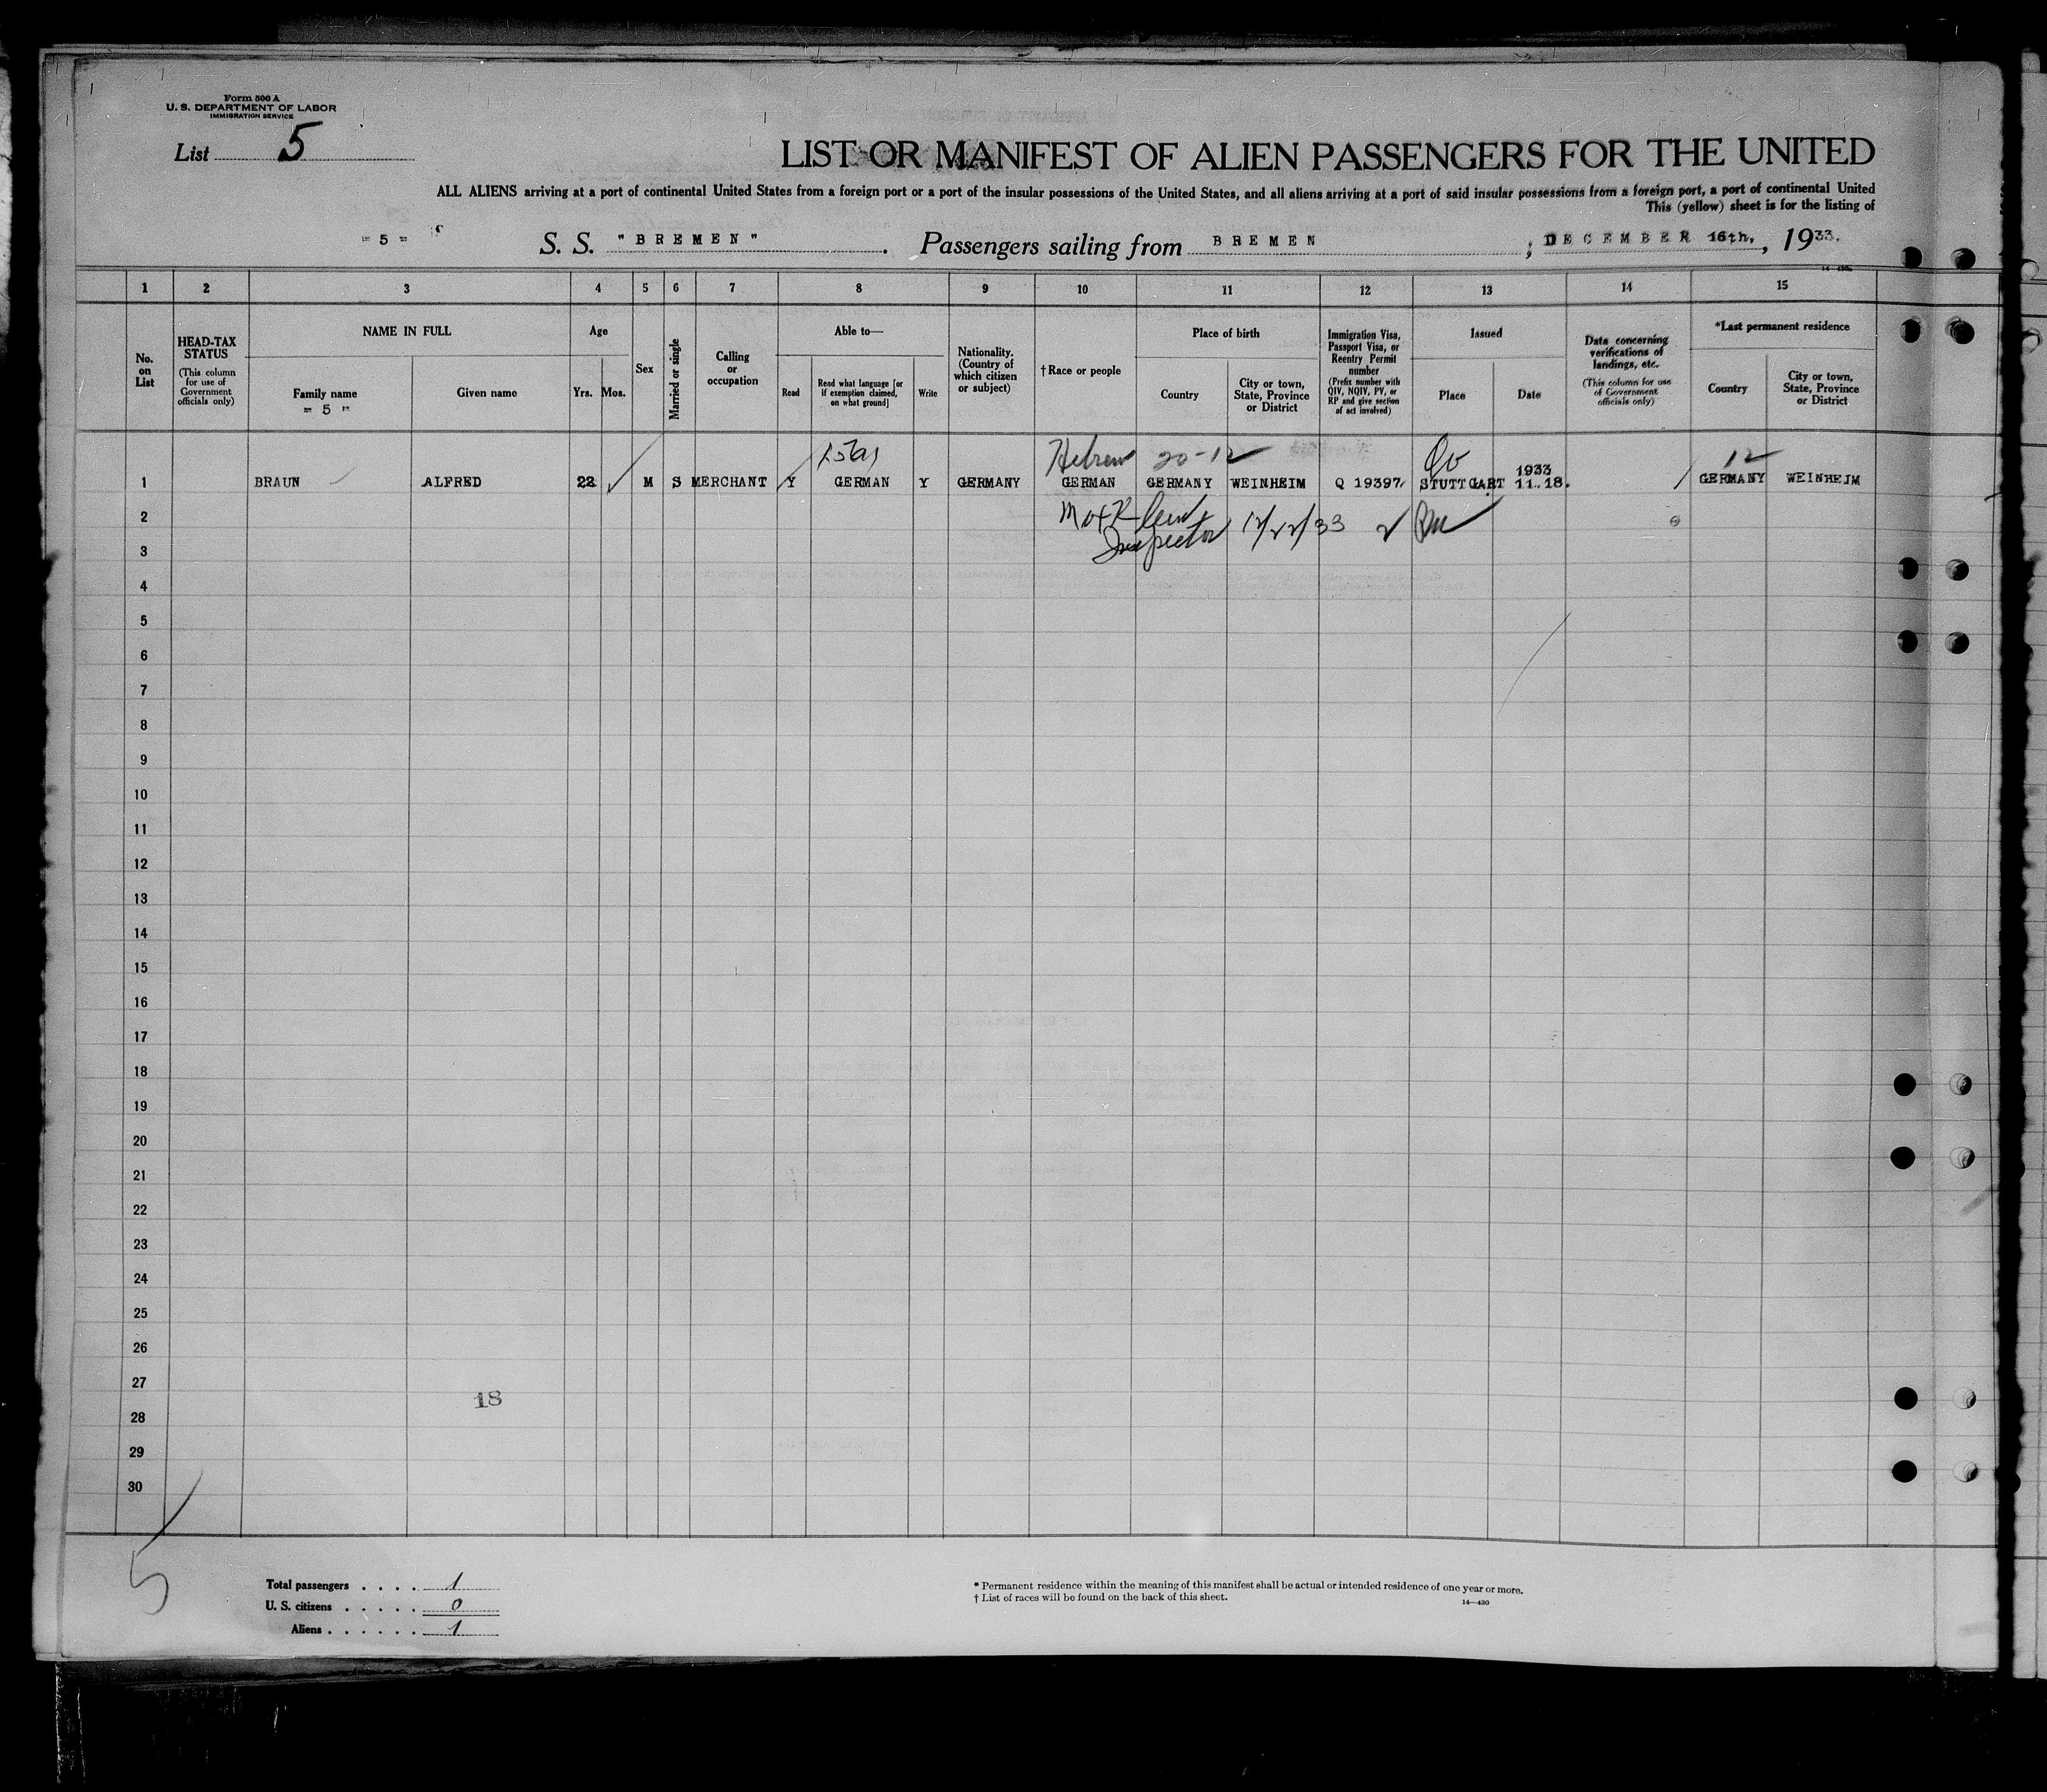 Form 500 A
U. S. DEPARTMENT OF LABOR
IMMIGRATION SERVICE
List 5
LIST OR MANIFEST OF ALIEN PASSENGERS FOR THE UNITED
ALL ALIENS arriving at a port of continental United States from a foreign port or a port of the insular possessions of the United States, and all aliens arriving at a port of said insular possessions from a foreign port, a port of continental United
This (yellow) sheet is for the listing of
- 5 - S. S. "BREMEN". Passengers sailing from BREMEN, DECEMBER 16th, 1933.
1 2 3 4 5 6 7 8 9 10 11 12 13 14 15
No. on List
HEAD-TAX STATUS
(This column for use of Government officials only)
NAME IN FULL
Family name
- 5 -
Given name
Age
Yrs. Mos.
Sex
Married or single
Calling or occupation
Able to—
Read
Read what language [or if exemption claimed, on what ground]
Write
Nationality. (Country of which citizen or subject)
† Race or people
Place of birth
Country
City or town, State, Province or District
Immigration Visa, Passport Visa, or Reentry Permit number
(Prefix number with QIV, NQIV, PV, or RP and give section of act involved)
Issued
Place
Date
Data concerning verifications of landings, etc.
(This column for use of Government officials only)
*Last permanent residence
Country
City or town, State, Province or District
Hebrew 20-12 12
1933
1 BRAUN ALFRED 22 M S MERCHANT Y GERMAN Y GERMANY GERMAN GERMANY WEINHEIM Q 19397 STUTTGART 11.18. GERMANY WEINHEIM
2
Inspector 12/22/33
3
4
5
6
7
8
9
10
11
12
13
14
15
16
17
18
19
20
21
22
23
24
25
26
27
18
28
29
30
5
Total passengers . . . . 1
U. S. citizens . . . . . 0
Aliens . . . . . . 1
* Permanent residence within the meaning of this manifest shall be actual or intended residence of one year or more.
† List of races will be found on the back of this sheet.
14—430